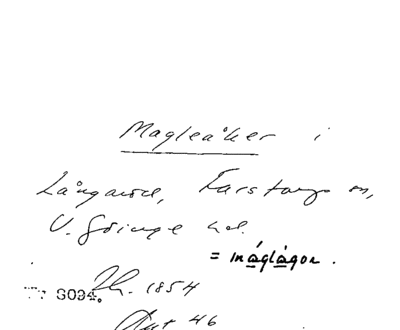 Magleåker i
Långaröd, Farstorps sn,
V. Göinge hd.
= máglågor.
Jh. 1854
46